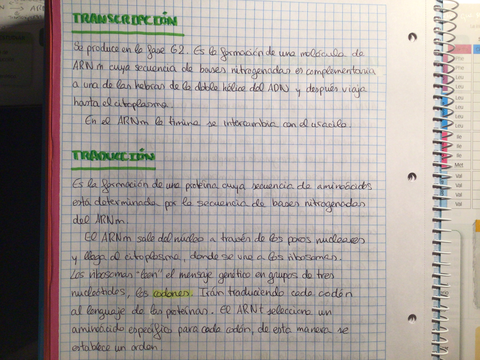 TRANSCRIPCIÓN
Se produce en la fase G2. Es la formación de una molécula de
ARNm cuya secuencia de bases nitrogenadas es complementaria
a una de las hebras de la doble hélice del ADN y después viaja
hasta el citoplasma.
En el ARNm la timina se intercambia con el uracilo.
TRADUCCIÓN
Es la formación de una proteína cuya secuencia de aminoácidos
está determinada por la secuencia de bases nitrogenadas
del ARNm.
El ARNm sale del núcleo a través de los poros nucleares
y llega al citoplasma, donde se une a los ribosomas.
Los ribosomas "leen" el mensaje genético en grupos de tres
nucleótidos, los codones. Irán traduciendo cada codón
al lenguaje de las proteínas. El ARNt selecciona un
aminoácido específico para cada codón, de esta manera se
establece un orden.
Leu
Leu
Leu
Leu
Ile
Ile
Ile
Met
Val
Val